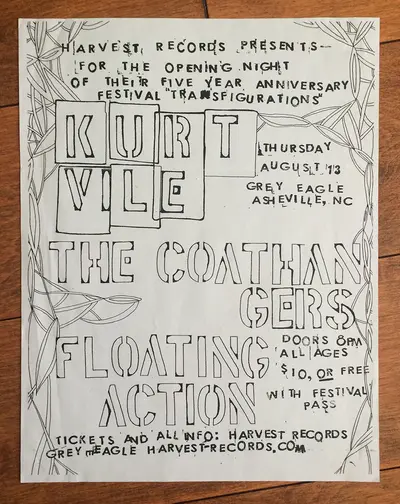 HARVEST RECORDS PRESENTS--
FOR THE OPENING NIGHT
OF THEIR FIVE YEAR ANNIVERSARY
FESTIVAL "TRANSFIGURATIONS"
KURT
VILE
THURSDAY
AUGUST 13
GREY EAGLE
ASHEVILLE, NC
THE COATHAN
GERS
FLOATING
ACTION
DOORS 8PM
ALL AGES
$10, OR FREE
WITH FESTIVAL
PASS
TICKETS AND ALL INFO: HARVEST RECORDS
GREY EAGLE HARVEST-RECORDS.COM